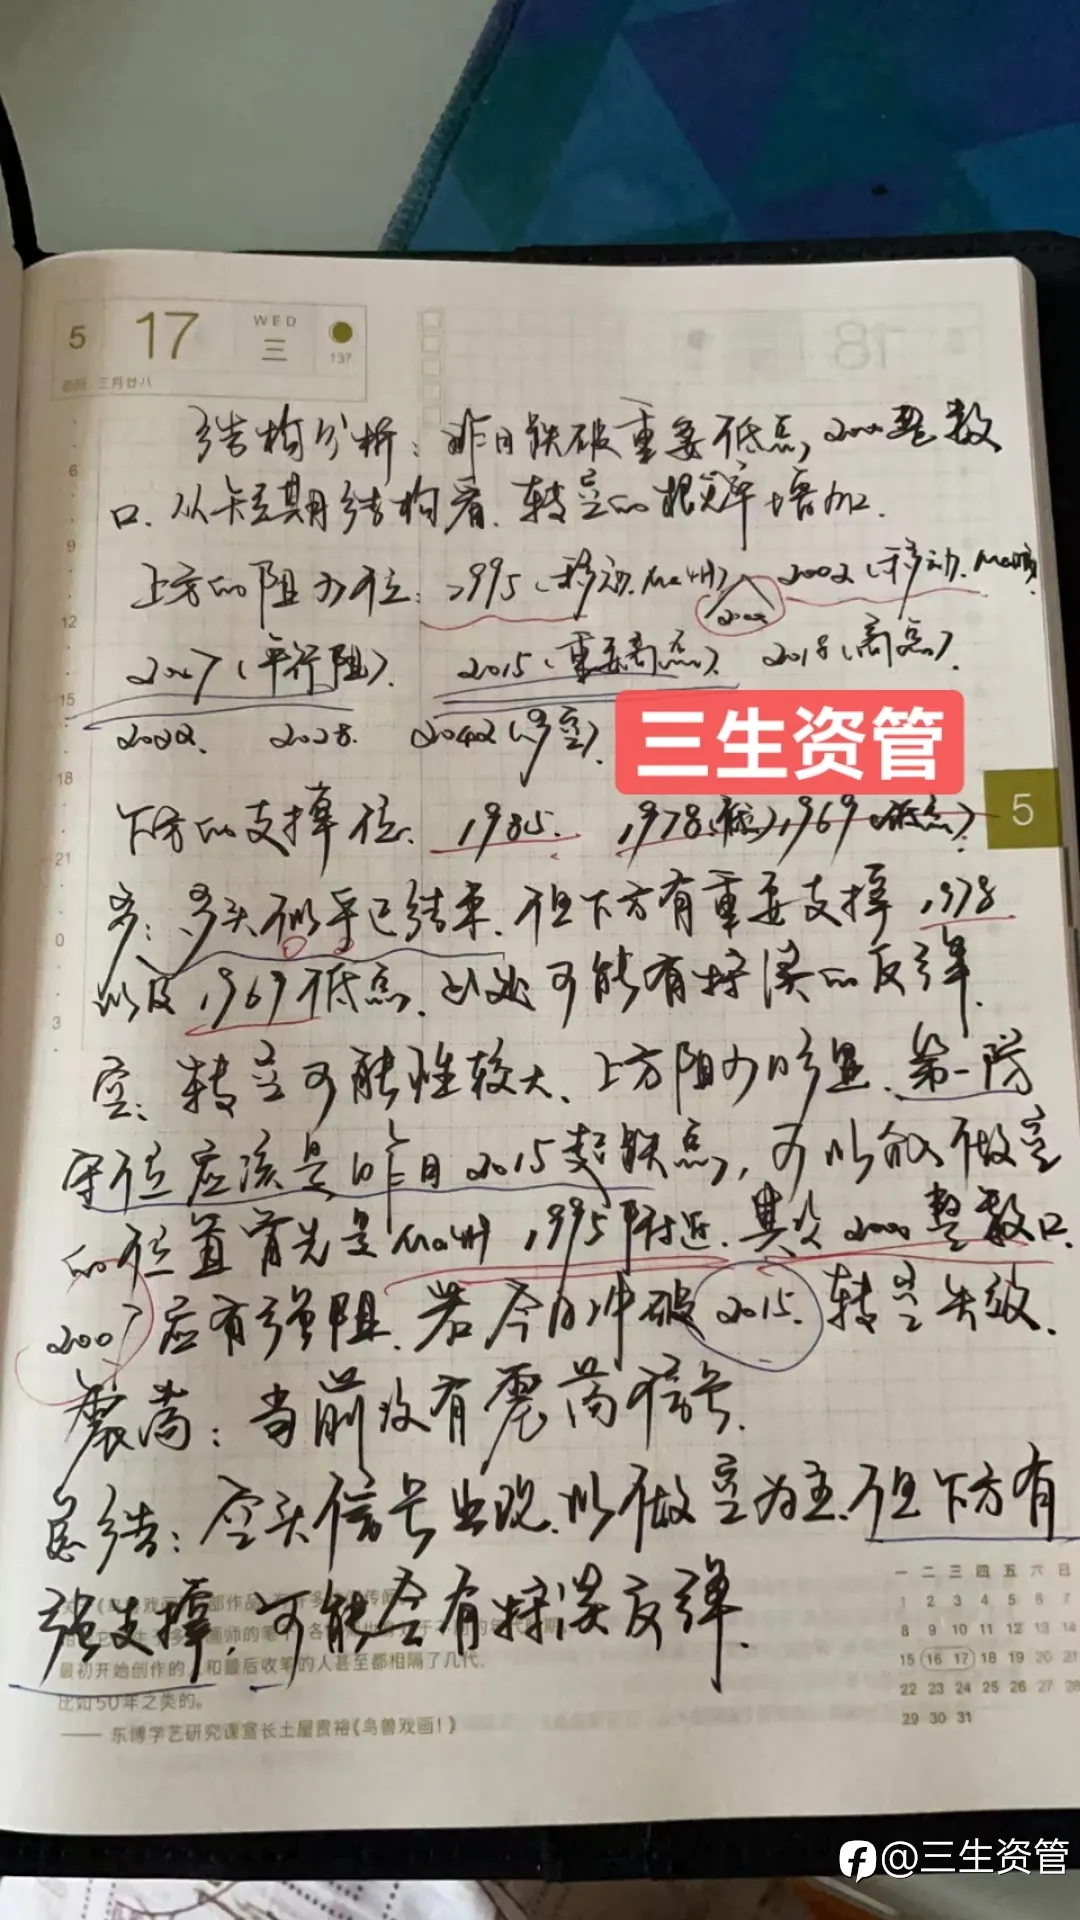 5 17 WED 三 137
三月廿八
18
结构分析：昨日跌破重要低点，2000整数
口.从短期结构看.转空的概率增加.
上方的阻力位：1995（移动.Ma4H） 2002（移动.Ma
2000
2007（平行阻）. 2015（重要高点）. 2018（高点）.
2022. 2028. 2042（多空）.
三生资管
下方的支撑位. 1985. 1978（低）1969（低点）.
5
多：多头似乎已结束.但下方有重要支撑1978
以及1969低点.此处可能有探涨的反弹.
空：转空可能性较大.上方阻力明显.第一防
守位应该是昨日2015起跌点，可以做空
的位置首先是Ma4H 1995附近.其次2000整数口.
2007应有强阻.若今日冲破2015.转空失效.
震荡：当前没有震荡信号.
总结：空头信号出现.以做空为主.但下方有
强支撑.可能会有探涨反弹.
6
9
12
15
18
21
0
3
最初开始创作的人和最后收笔的人甚至都相隔了几代.
比如50年之类的。
—— 东博学艺研究课室长土屋贵裕《鸟兽戏画！》
一 二 三 四 五 六 日
1 2 3 4 5 6 7
8 9 10 11 12 13 14
15 16 17 18 19 20 21
22 23 24 25 26 27 28
29 30 31
@三生资管